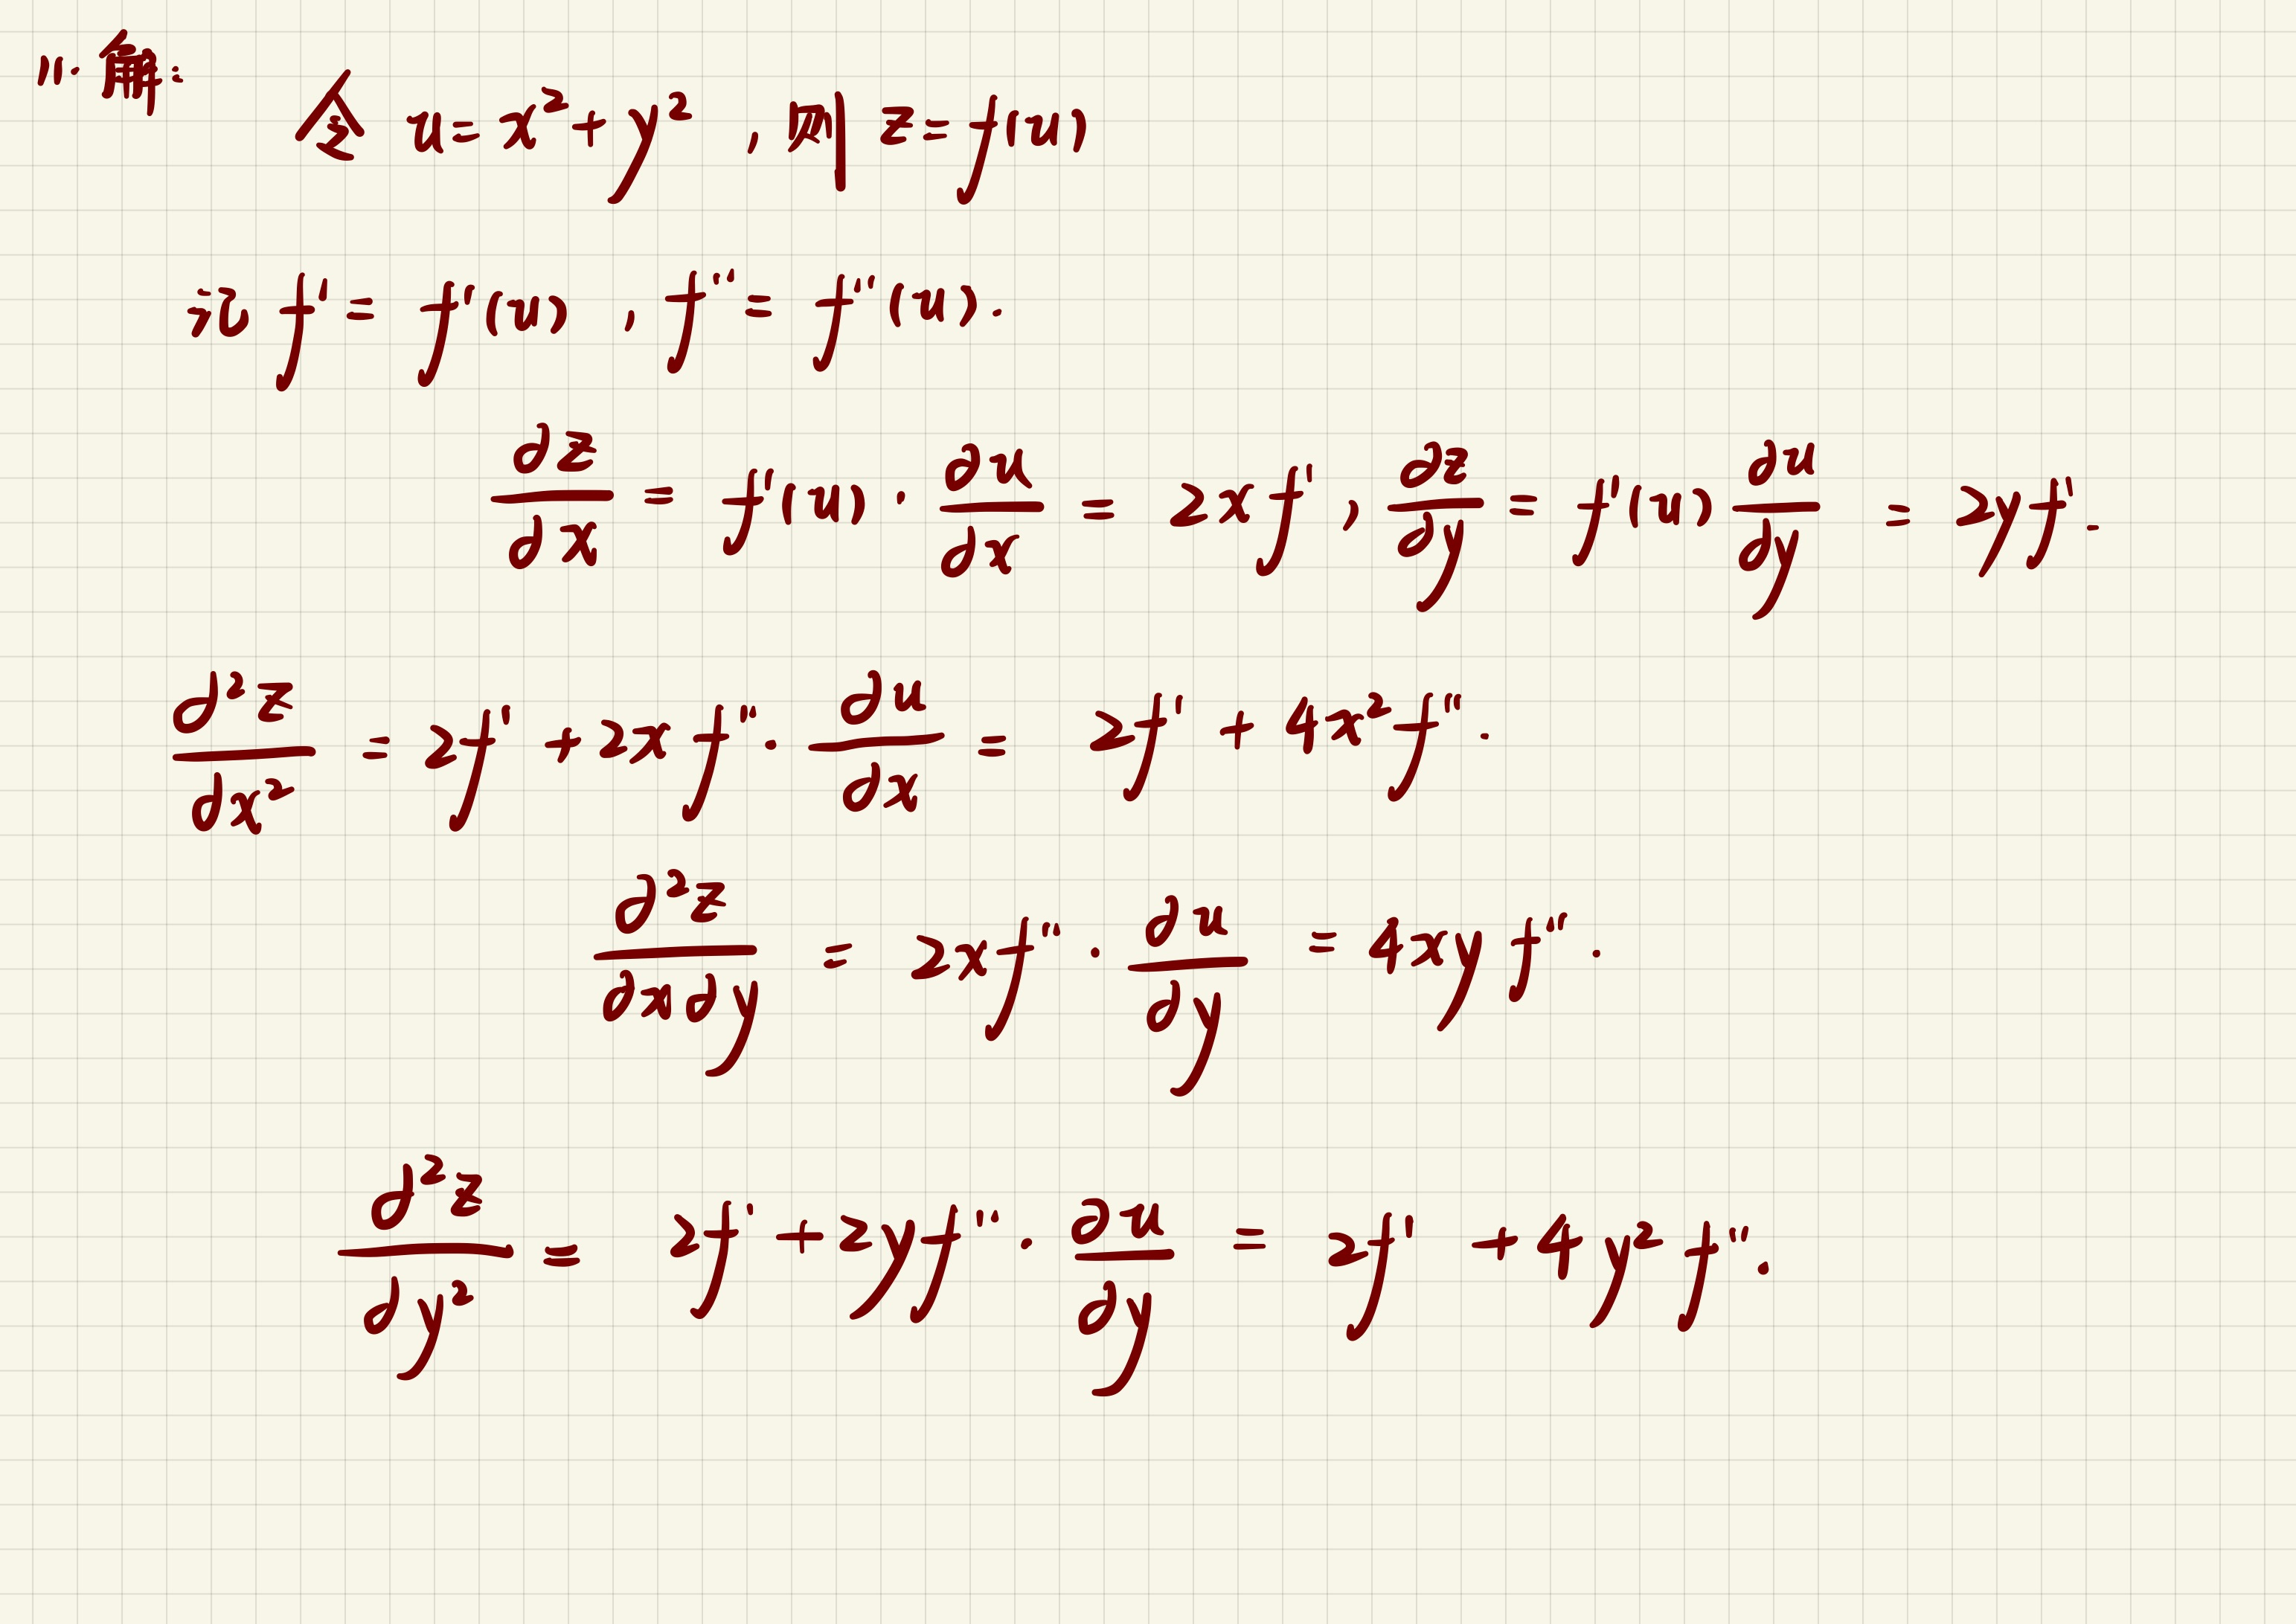 11. 解:
令 u = x² + y² , 则 z = f(u)
记 f' = f'(u) , f'' = f''(u).
∂z/∂x = f'(u) · ∂u/∂x = 2xf' , ∂z/∂y = f'(u) ∂u/∂y = 2yf'.
∂²z/∂x² = 2f' + 2xf'' · ∂u/∂x = 2f' + 4x²f''.
∂²z/∂x∂y = 2xf'' · ∂u/∂y = 4xyf''.
∂²z/∂y² = 2f' + 2yf'' · ∂u/∂y = 2f' + 4y²f''.